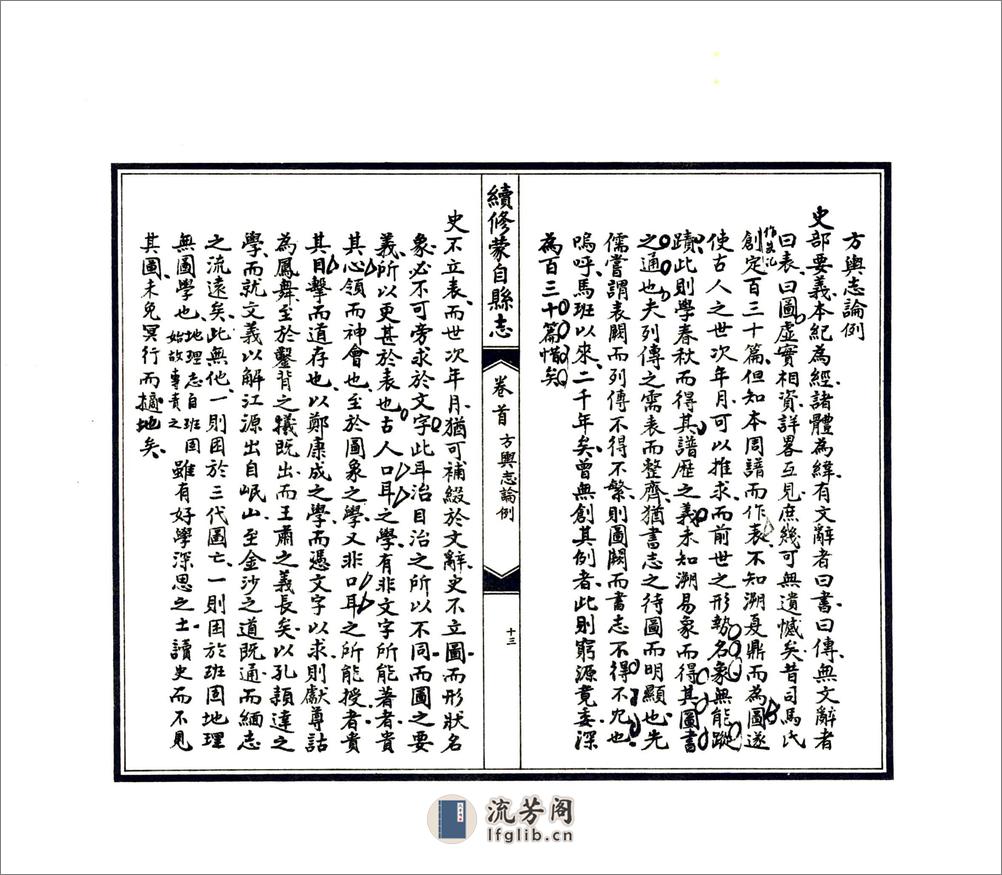 方輿志論例
史部要義本紀為經諸體為緯有文辭者曰書曰傳無文辭者
曰表曰圖虛實相資詳畧互見庶幾可無遺憾矣昔司馬氏
作史記
創定百三十篇但知本周譜而作表不知溯夏鼎而為圖遂
使古人之世次年月可以推求而前世之形勢名象無能蹤
蹟此則學春秋而得其譜歷之義未知溯易象而得其圖書
之通也夫列傳之需表而整齊猶書志之待圖而明顯也先
儒嘗謂表闕而列傳不得不繁則圖闕而書志不得不冗也
嗚呼馬班以來二千年矣曾無創其例者此則窮源竟委深
為百三十篇惜矣
續修蒙自縣志
卷首
方輿志論例
十三
史不立表而世次年月猶可補綴於文辭史不立圖而形狀名
象必不可旁求於文字此耳治目治之所以不同而圖之要
義所以更甚於表也古人口耳之學有非文字所能著者貴
其心領而神會也至於圖象之學又非口耳之所能授者貴
其目擊而道存也以鄭康成之學而憑文字以求則獻尊詁
為鳳舞至於鑿背之犧既出而王肅之義長矣以孔穎達之
學而就文義以解江源出自岷山至金沙之道既通而緬志
之流遠矣此無他一則困於三代圖亡一則困於班固地理
無圖學也地理志自班固始故專責之雖有好學深思之士讀史而不見
其圖未免冥行而擿地矣
流芳阁
lfglib.cn